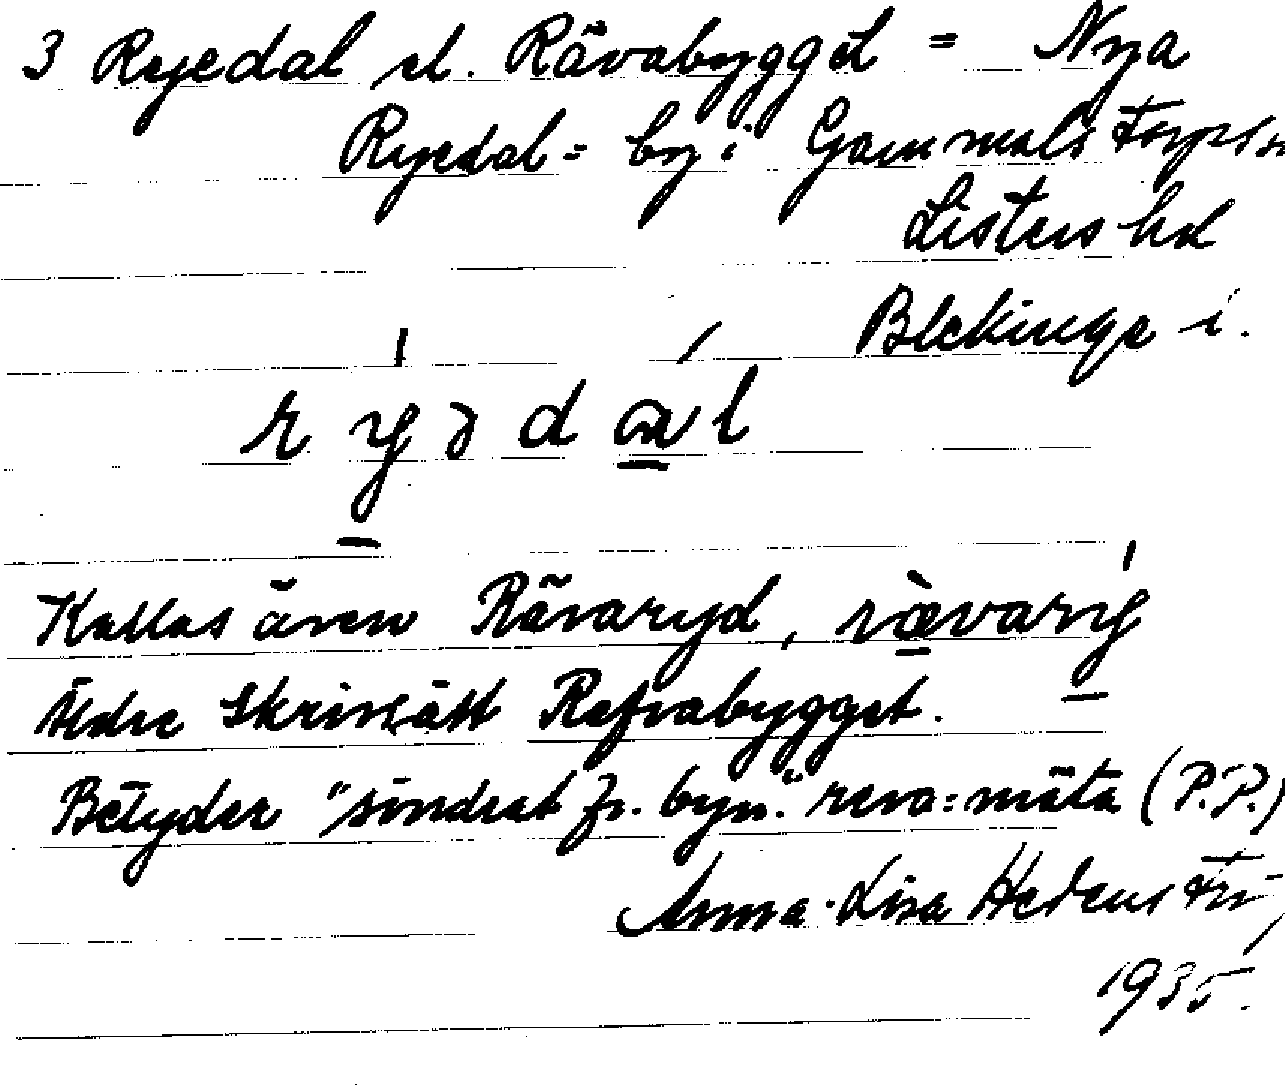 3 Ryedal el. Rävabygget = Nya
Ryedal = by i Gammals Torps sn
Listers hd
Blekinge l.
r y ə d a l
Kallas även Rävaryd, rævary
Äldre skrivsätt Refvabygget.
Betyder "söndrat fr. byn." reva = mäta (P.P.)
Anna-Lisa
1935.